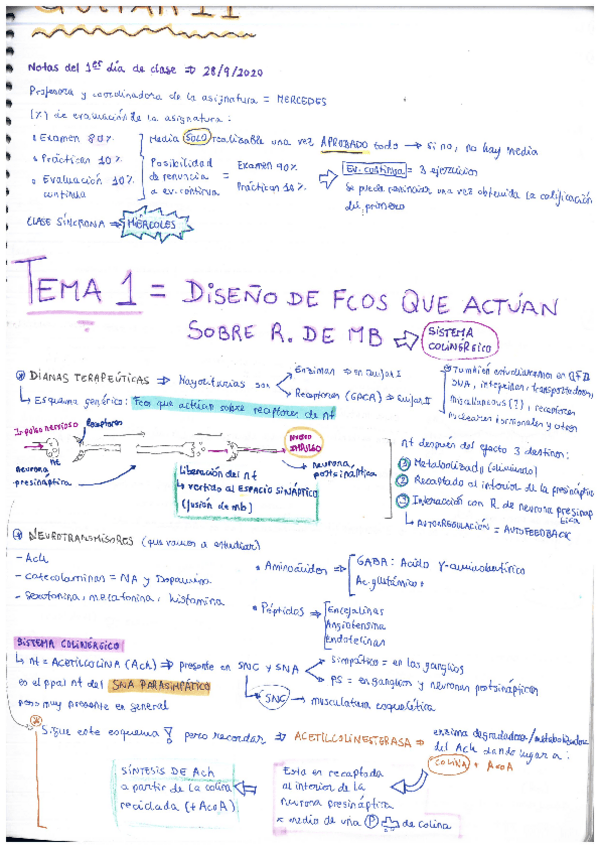 QUIFAR II
Notas del 1er día de clase ⇒ 28/9/2020
Profesora y coordinadora de la asignatura = MERCEDES
(%) de evaluación de la asignatura:
• Examen 80%
• Prácticas 10%
• Evaluación 10% continua
Media SOLO realizable una vez APROBADO todo → si no, no hay media
Posibilidad de renuncia a ev. continua = Examen 90% Prácticas 10%
⇒ Ev. continua = 3 ejercicios
Se puede renunciar una vez obtenida la calificación del primero
CLASE SÍNCRONA ⇒ MIÉRCOLES
TEMA 1 = DISEÑO DE FCOS QUE ACTÚAN
SOBRE R. DE MB ⇨ SISTEMA COLINÉRGICO
DIANAS TERAPÉUTICAS ⇒ Mayoritarias son
Enzimas ⇒ en Quifar I
Receptores (GPCR) ⇒ Quifar II
También estudiaremos en QFII
DNA, integrinas, transportadores,
miscellaneous (?), receptores
nucleares hormonales y otros
↳ Esquema genérico: Fcos que actúan sobre receptores de nt
Impulso nervioso
Receptores
nt
neurona presináptica
NUEVO IMPULSO
neurona postsináptica
Liberación del nt
↳ vertido al ESPACIO SINÁPTICO
(fusión de mb)
nt después del efecto 3 destinos:
① Metabolizado (eliminado)
② Recaptado al interior de la presináptica
③ Interacción con R. de neurona presináptica
↳ AUTORREGULACIÓN = AUTOFEEDBACK
NEUROTRANSMISORES (que vamos a estudiar)
- Ach
- Catecolaminas = NA y Dopamina
- Serotonina, melatonina, histamina
• Aminoácidos ⇒
GABA: Ácido γ-aminobutírico
Ac. glutámico
• Péptidos ⇒
Encefalinas
Angiotensina
Endotelinas
SISTEMA COLINÉRGICO
↳ nt = ACETILCOLINA (Ach) ⇒ presente en SNC y SNA
simpático = en los ganglios
PS = en ganglios y neuronas postsinápticas
es el ppal nt del SNA PARASIMPÁTICO
pero muy presente en general
SNC → musculatura esquelética
Sigue este esquema! pero recordar ⇒ ACETILCOLINESTERASA ⇒ enzima degradadora/metabolizadora
del Ach dando lugar a:
COLINA + AcoA
Esta es recaptada
al interior de la
neurona presináptica
x medio de una P de colina
SÍNTESIS DE Ach
a partir de la colina
reciclada (+ AcoA)